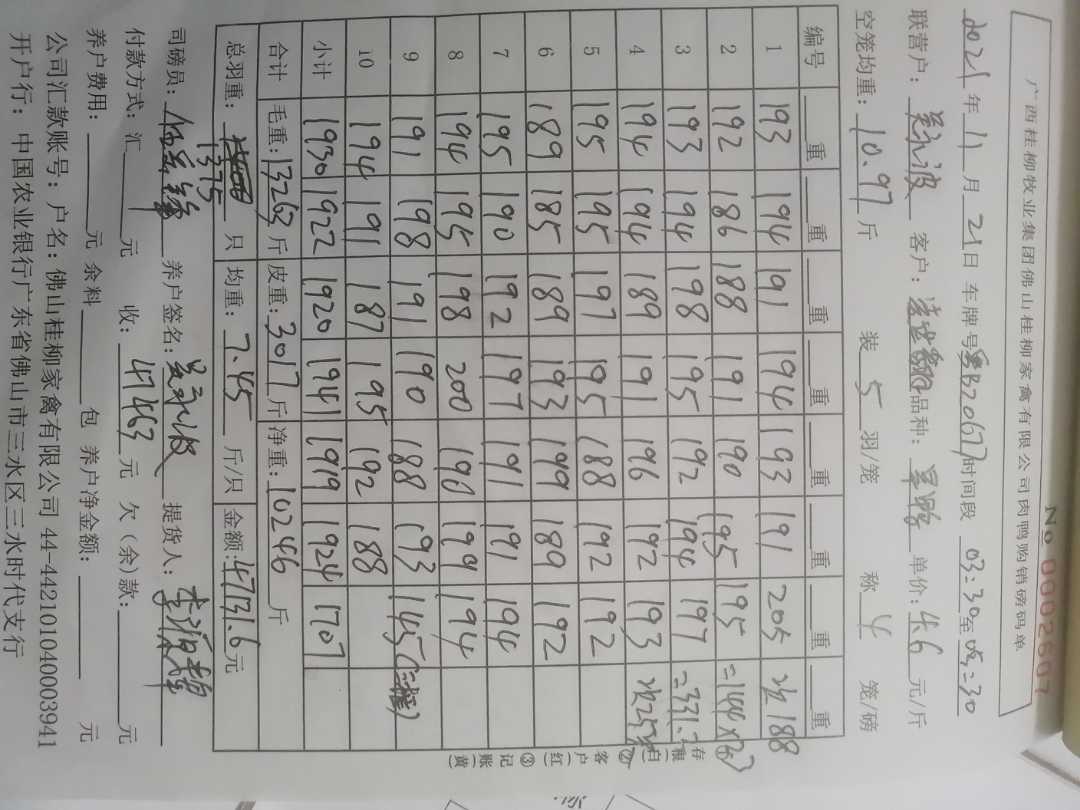 广西桂柳牧业集团佛山桂柳家禽有限公司肉鸭购销磅码单
No 0002607
2021年11月21日 车牌号粤B20677时间段 03:30至05:30
联营户: 吴永波 客户: 品种: 单价: 4.6 元/斤
空笼均重: 10.97 斤 装 5 羽/笼 称 4 笼/磅
编号 重 重 重 重 重 重 重 重
1 193 194 191 194 193 191 205 188
2 192 186 188 191 190 195 195
3 193 194 198 195 192 194 197
4 194 194 189 191 196 192 193
5 195 195 197 195 188 192 192
6 189 185 189 193 199 189 192
7 195 190 192 197 191 191 194
8 194 195 198 200 190 199 194
9 191 198 191 190 188 193 145
10 194 191 187 195 192 188
小计 1930 1922 1920 1941 1919 1924 1707
合计 毛重: 13263 斤 皮重: 3017 斤 净重: 10246 斤
总羽重: 1375 只 均重: 7.45 斤/只 金额: 47131.6 元
司磅员: 养户签名: 吴永波 提货人:
付款方式: 汇 元 收: 47463 元 欠(余)款: 元
养户费用: 元 余料 包 养户净金额: 元
公司汇款账号: 户名: 佛山桂柳家禽有限公司 44-442101040003941
开户行: 中国农业银行广东省佛山市三水区三水时代支行
存根(白) ② 客户(红) ③ 记账(黄)